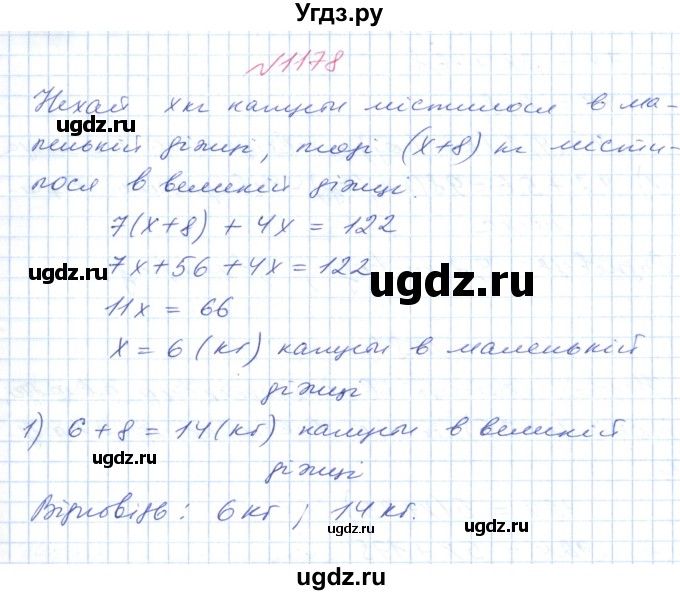 Угдз.ру
№1178
Нехай x кг капусти містилося в ма-
ugdz.ru
ленькій діжці, тоді (x+8) кг місти-
ugdz.ru
лося в великій діжці.
7(x+8) + 4x = 122
ugdz.ru
7x+56 +4x = 122
ugdz.ru
11x = 66
x = 6 (кг) капусти в маленькій
діжці
1) 6+8 = 14(кг) капусти в великій
ugdz.ru
діжці
ugdz.ru
Відповідь: 6кг ; 14 кг.
ugdz.ru
ugdz.ru
ugdz.ru